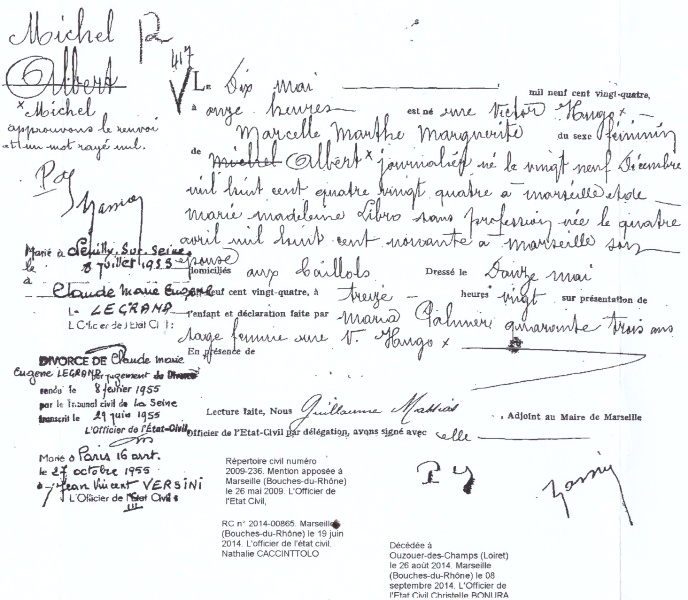 Michel
Albert
417
x Michel
approuvons le renvoi
et un mot rayé nul.
Le Dix mai mil neuf cent vingt-quatre,
à onze heures est né rue Victor Hugo x
Marcelle Marthe Marguerite du sexe féminin
de Michel Albert x journalier né le vingt neuf Décembre
mil huit cent quatre vingt quatre à Marseille et de
Marie Madeleine Libro sans profession née le quatre
avril mil huit cent nonante à Marseille son
épouse
domiciliés aux Caillols Dressé le Douze mai
mil neuf cent vingt-quatre, à treize heures vingt sur présentation de
l'enfant et déclaration faite par Maria Palmieri quarante trois ans
sage femme rue V. Hugo x
En présence de
Lecture faite, Nous Guillaume Mathias, Adjoint au Maire de Marseille
Officier de l'Etat-Civil par délégation, avons signé avec elle
Marié à Neuilly. Sur. Seine.
le 8 juillet 1953
à Claude Marie Eugène
LEGRAND
L'Officier de l'Etat Civil:
DIVORCE DE Claude Marie
Eugene LEGRAND par jugement de Divorce
rendu le 8 février 1955
par le Tribunal civil de La Seine
transcrit le 29 juin 1955
L'Officier de l'État-Civil,
Marié à Paris 16 arrt.
le 27 octobre 1955
à Jean Vincent VERSINI
L'Officier de l'Etat Civil:
Répertoire civil numéro
2009-236. Mention apposée à
Marseille (Bouches-du-Rhône)
le 26 mai 2009. L'Officier de
l'Etat Civil,
RC n° 2014-00865. Marseille
(Bouches-du-Rhône) le 19 juin
2014. L'officier de l'état civil.
Nathalie CACCINTTOLO
Décédée à
Ouzouer-des-Champs (Loiret)
le 26 août 2014. Marseille
(Bouches-du-Rhône) le 08
septembre 2014. L'Officier de
l'Etat Civil Christelle BONURA